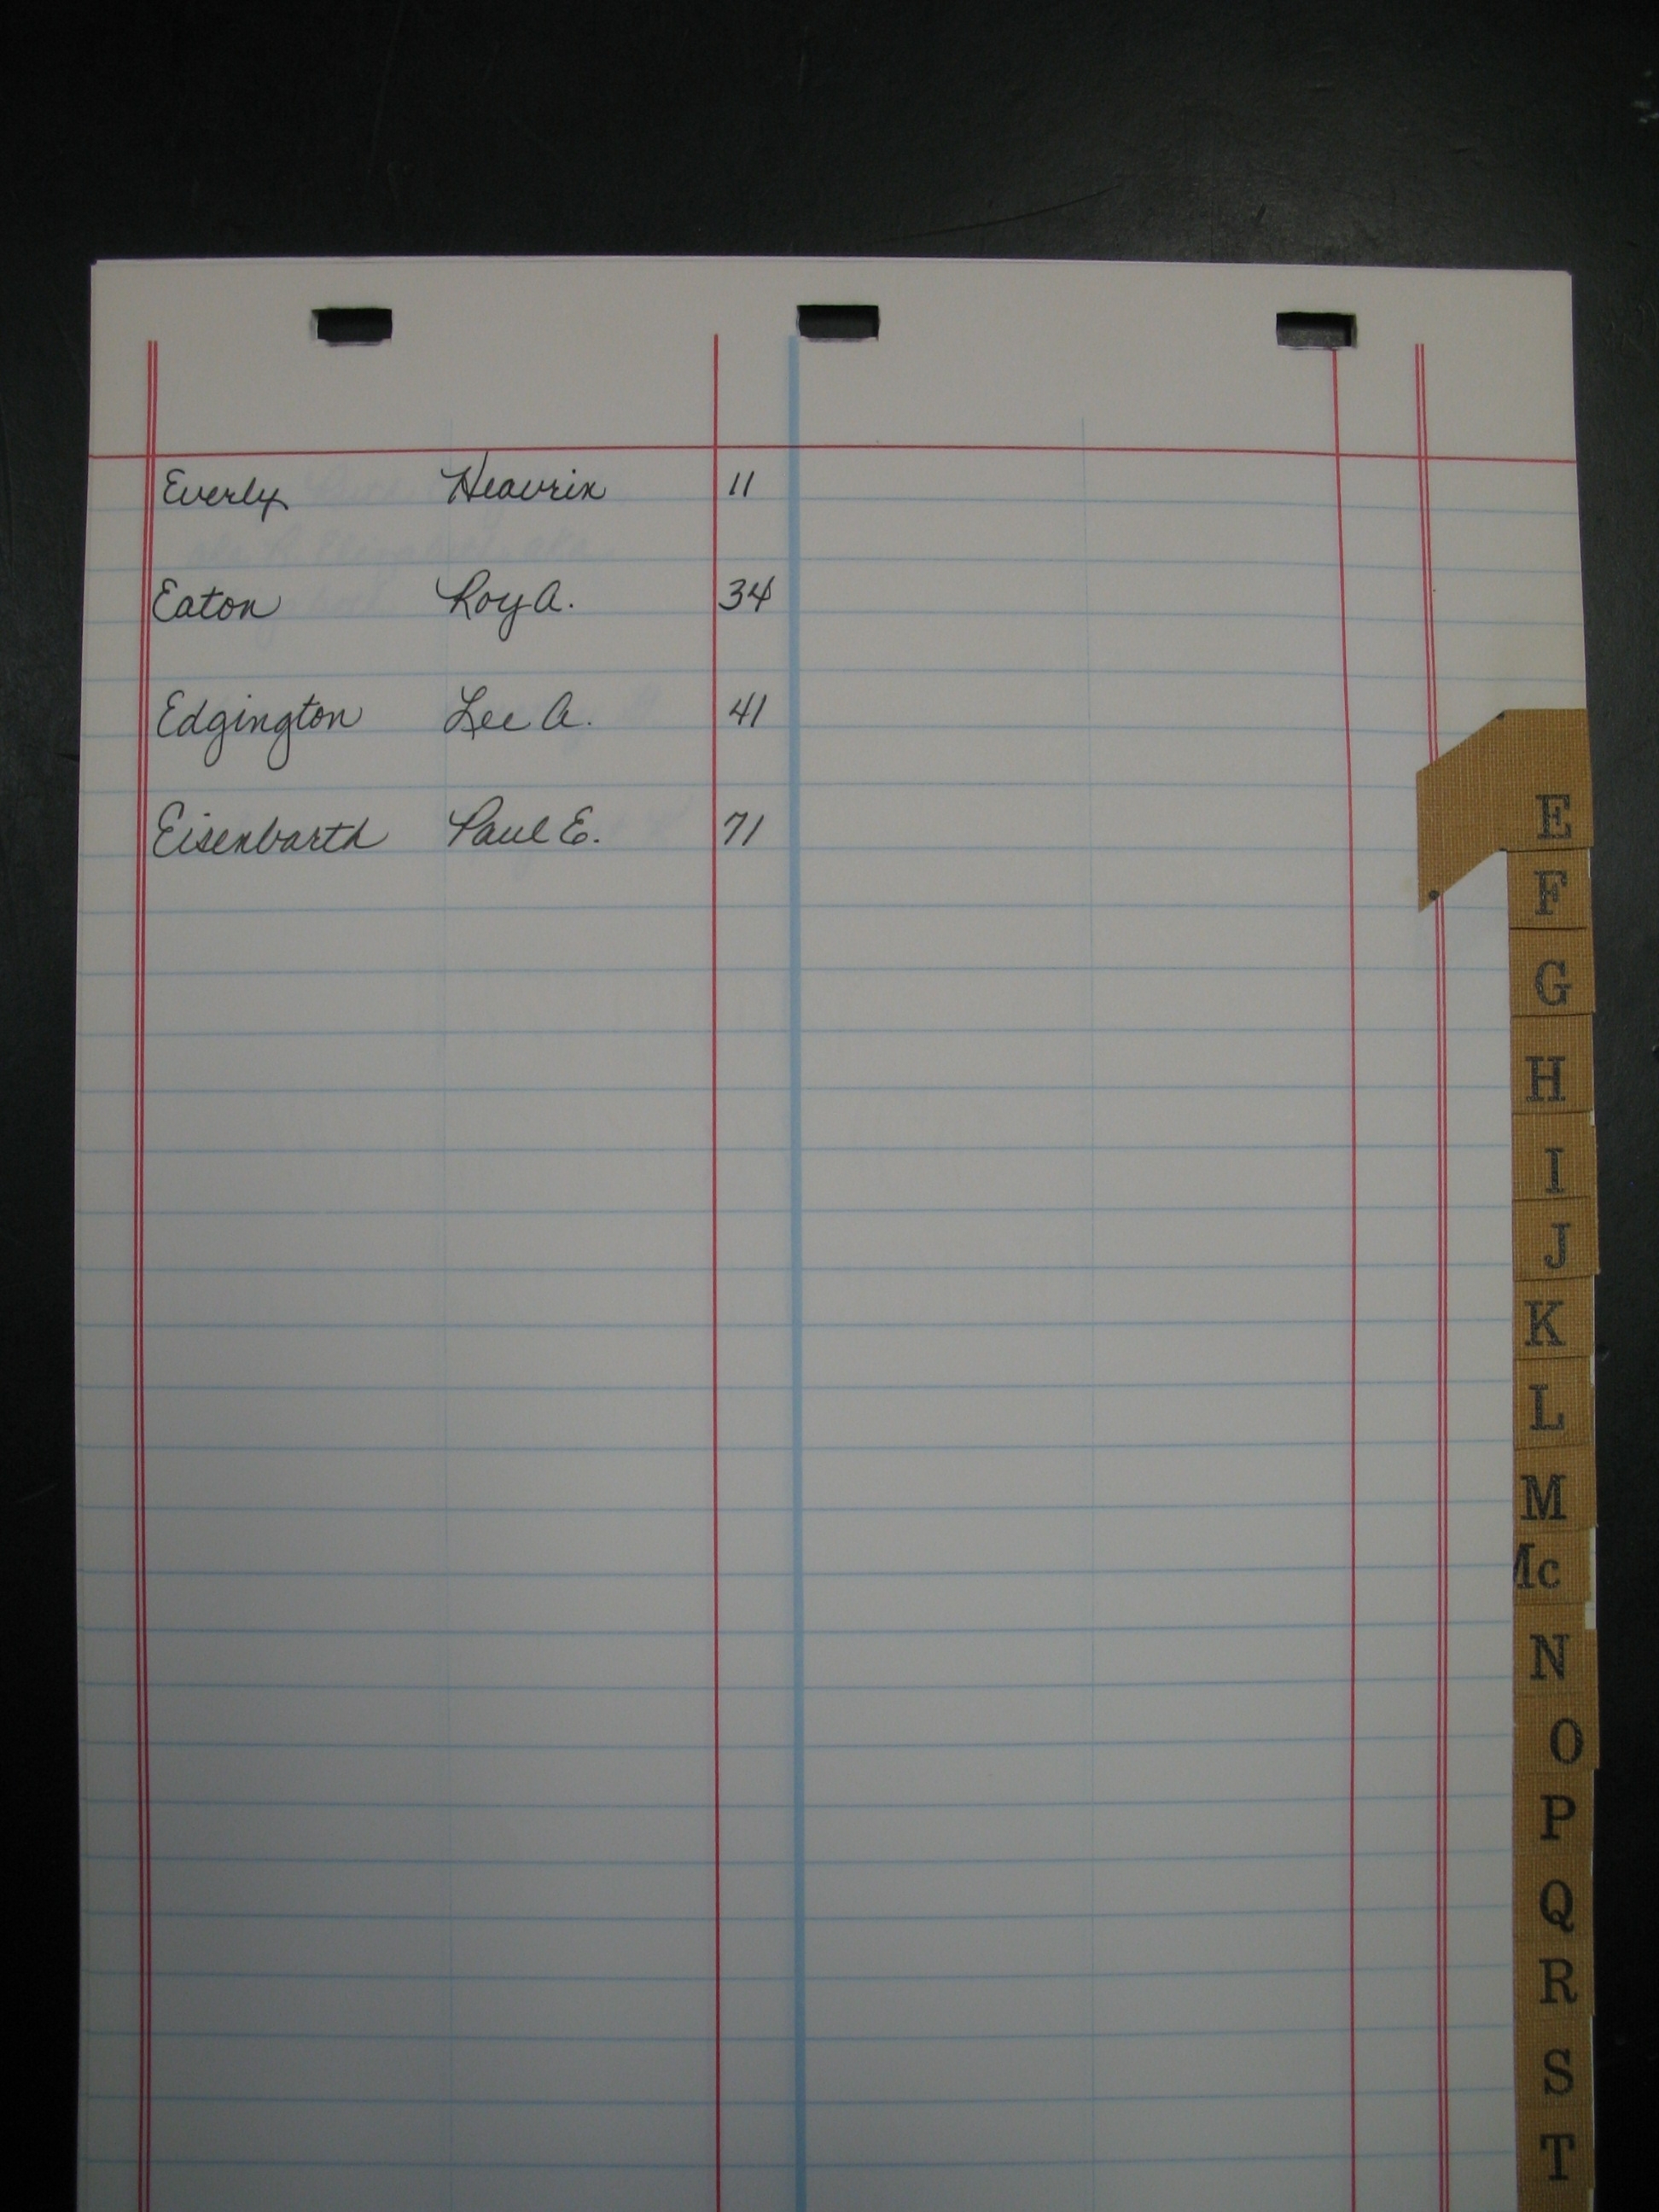 Everly Heavrin 11
Eaton Roy A. 34
Edgington Lee A. 41
Eisenbarth Paul E. 71
E
F
G
H
I
J
K
L
M
Mc
N
O
P
Q
R
S
T